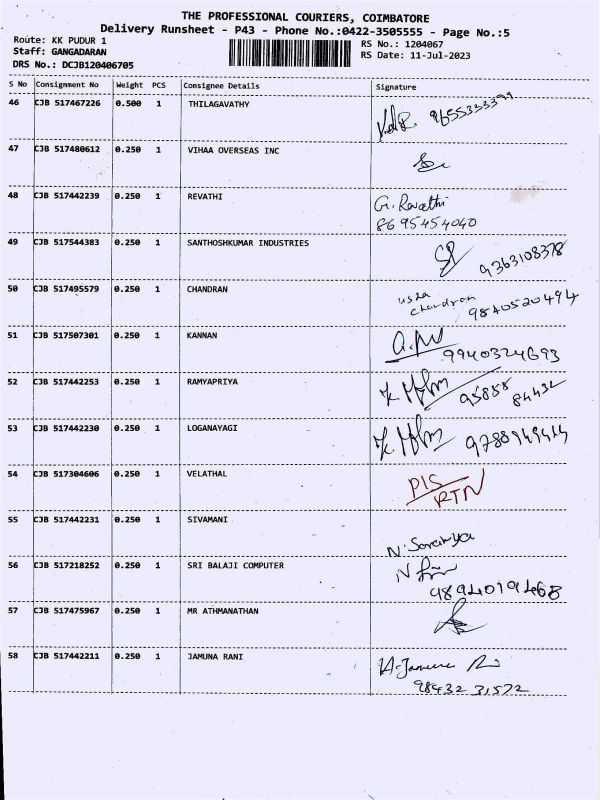 THE PROFESSIONAL COURIERS, COIMBATORE
Delivery Runsheet - P43 - Phone No.:0422-3505555 - Page No.:5
Route: KK PUDUR 1
Staff: GANGADARAN
DRS No.: DCJB120406705
RS No.: 1204067
RS Date: 11-Jul-2023
S No Consignment No Weight PCS Consignee Details Signature
46 CJB 517467226 0.500 1 THILAGAVATHY
9655333399
47 CJB 517480612 0.250 1 VIHAA OVERSEAS INC
48 CJB 517442239 0.250 1 REVATHI G. Revathi
8695454040
49 CJB 517544383 0.250 1 SANTHOSHKUMAR INDUSTRIES
9363108378
50 CJB 517495579 0.250 1 CHANDRAN usha
chandran 9840520494
51 CJB 517507301 0.250 1 KANNAN
9940324693
52 CJB 517442253 0.250 1 RAMYAPRIYA
95858 84432
53 CJB 517442230 0.250 1 LOGANAYAGI
54 CJB 517304606 0.250 1 VELATHAL DIS
RTN
55 CJB 517442231 0.250 1 SIVAMANI
N. Soranya
56 CJB 517218252 0.250 1 SRI BALAJI COMPUTER
9894019468
57 CJB 517475967 0.250 1 MR ATHMANATHAN
58 CJB 517442211 0.250 1 JAMUNA RANI
98432 31572